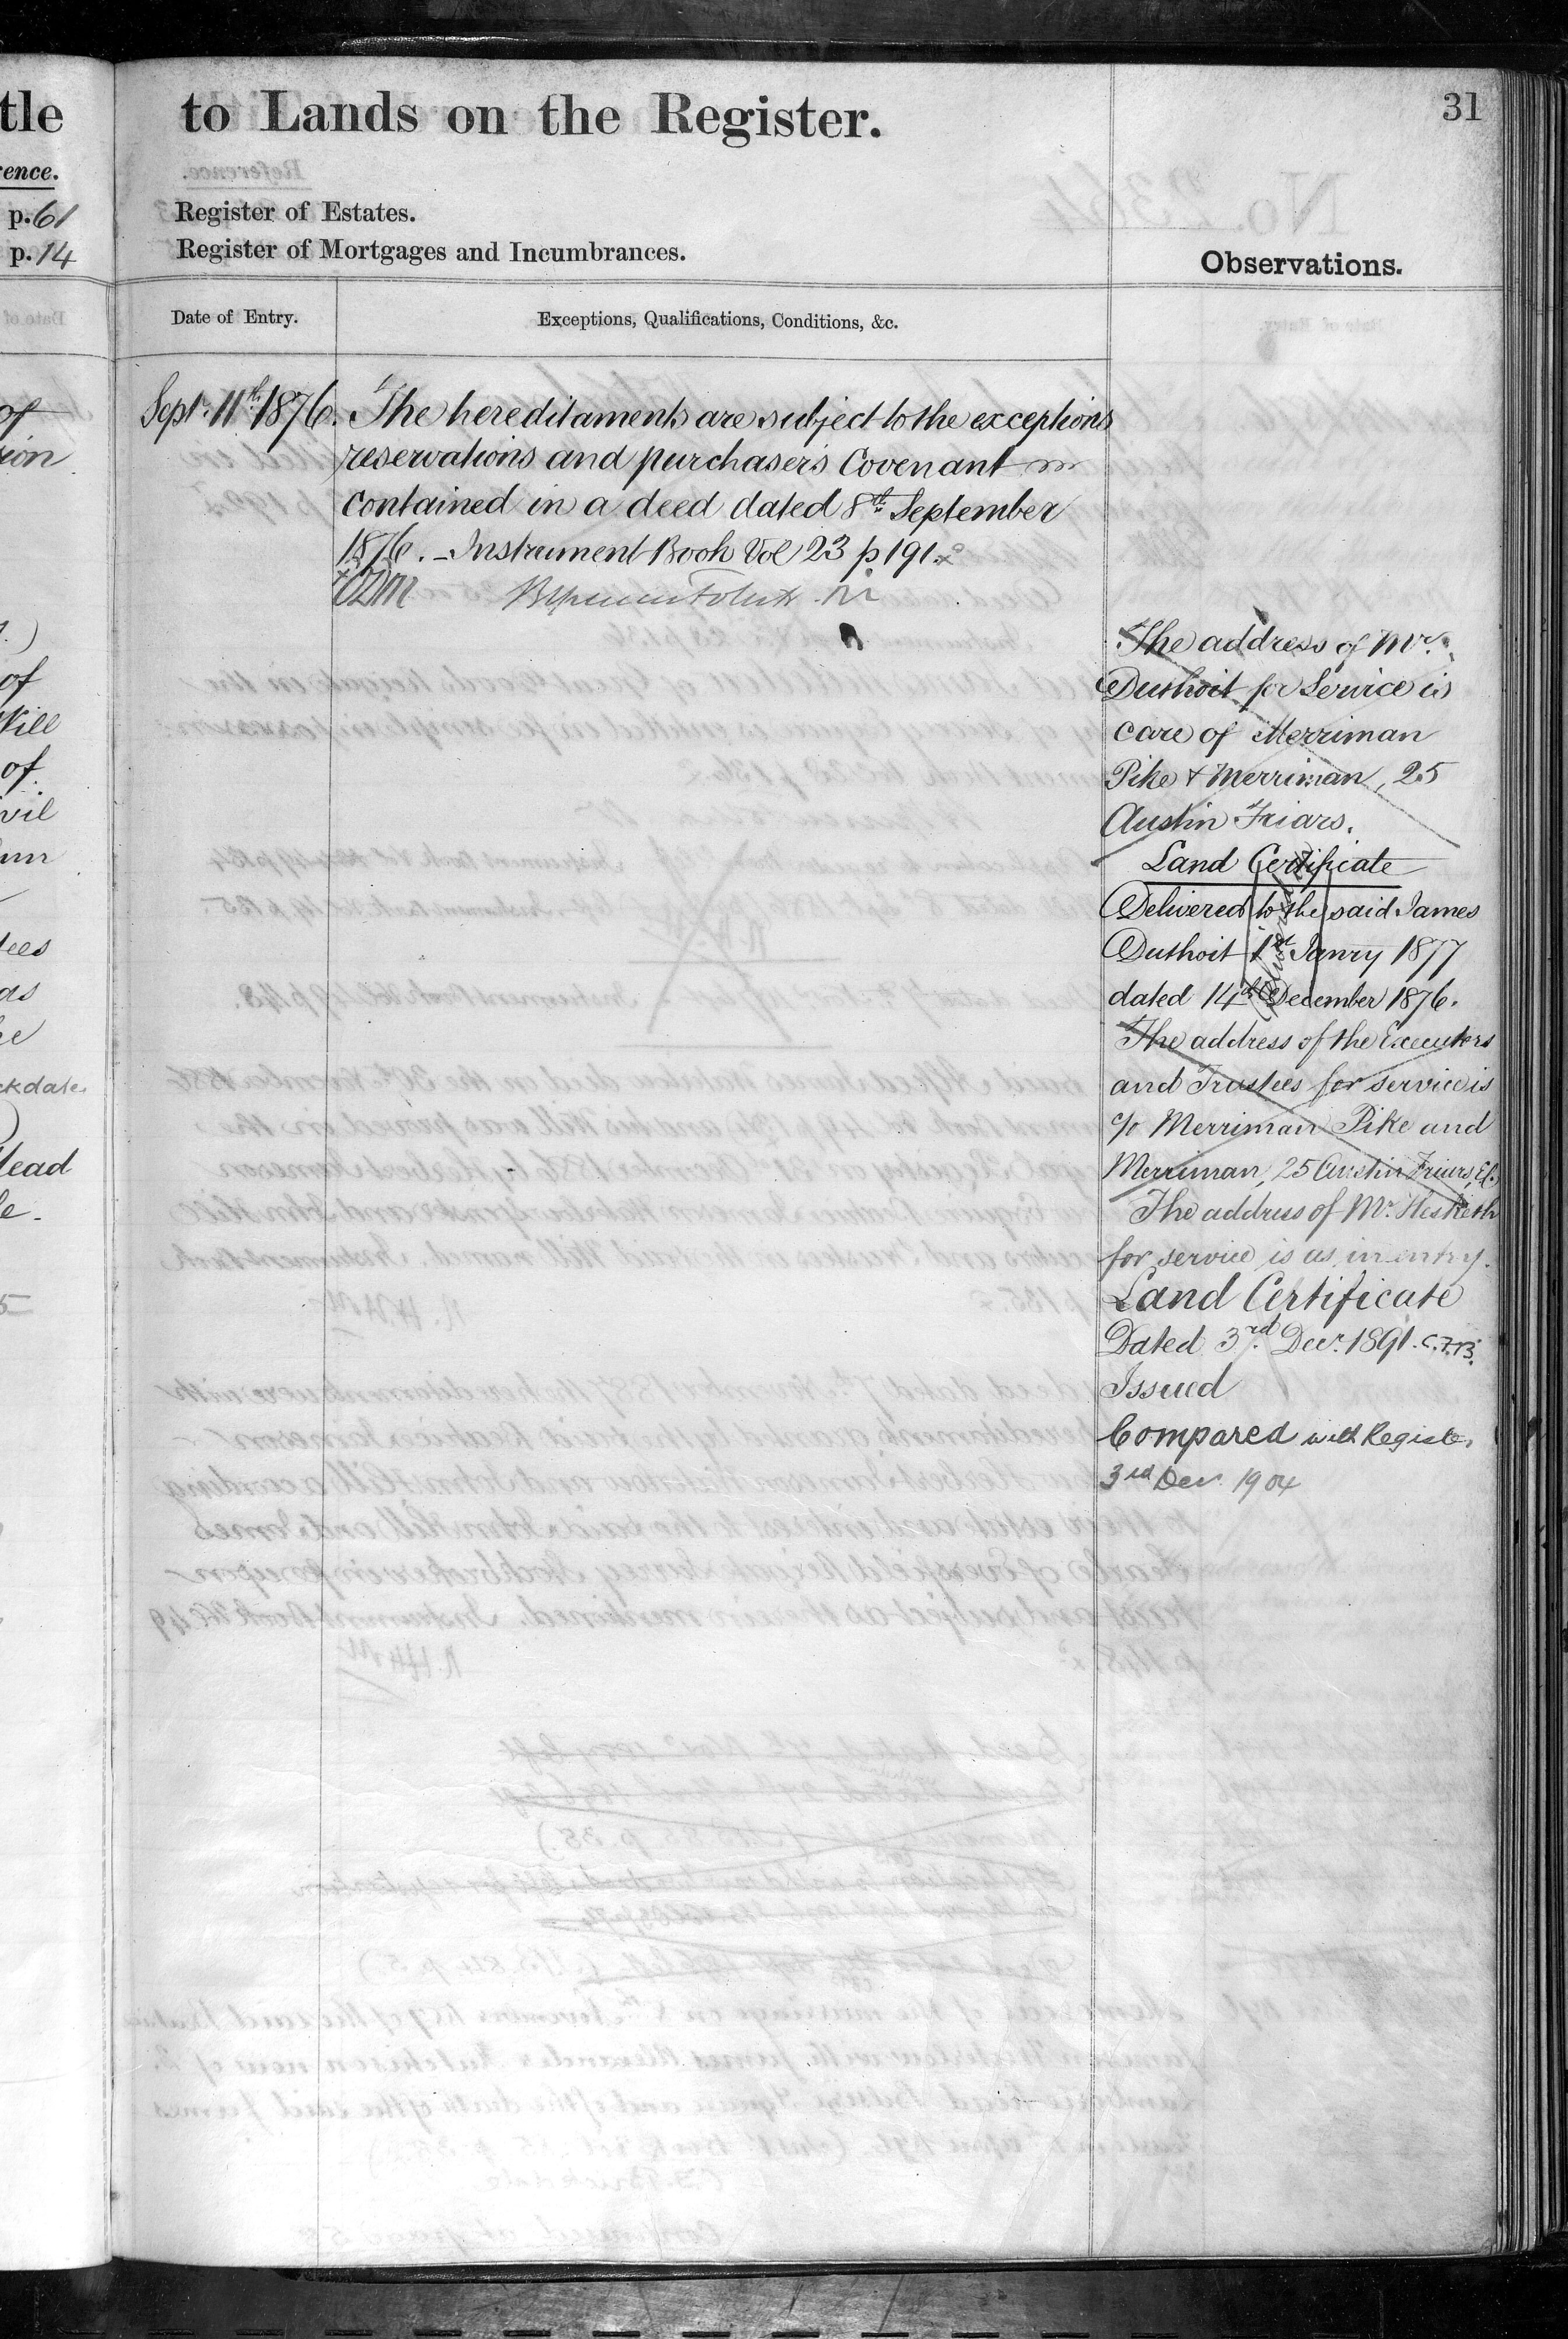 tle
rence.
p. 61
p. 14
to Lands on the Register.
31
Register of Estates.
Register of Mortgages and Incumbrances.
Observations.
Date of Entry.
Exceptions, Qualifications, Conditions, &c.
Sept. 11th 1876.
The hereditaments are subject to the exceptions
reservations and purchasers Covenant
contained in a deed dated 8th September
1876. - Instrument Book Vol 23 p 191.
The address of Mr.
Duthoit for Service is
care of Merriman
Pike & Merriman, 25
Austin Friars.
Land Certificate
Delivered to the said James
Duthoit 1st Janry 1877
dated 14th December 1876.
The address of the Executors
and Trustees for service is
c/o Merriman Pike and
Merriman, 25 Austin Friars, E.C.
The address of Mr. Hesketh
for service is as in entry.
Land Certificate
Dated 3rd Decr. 1891. C.F.B.
Issued
Compared with Register
3rd Dec. 1904
of
of
Will
of
lees
as
ckdale.
lead